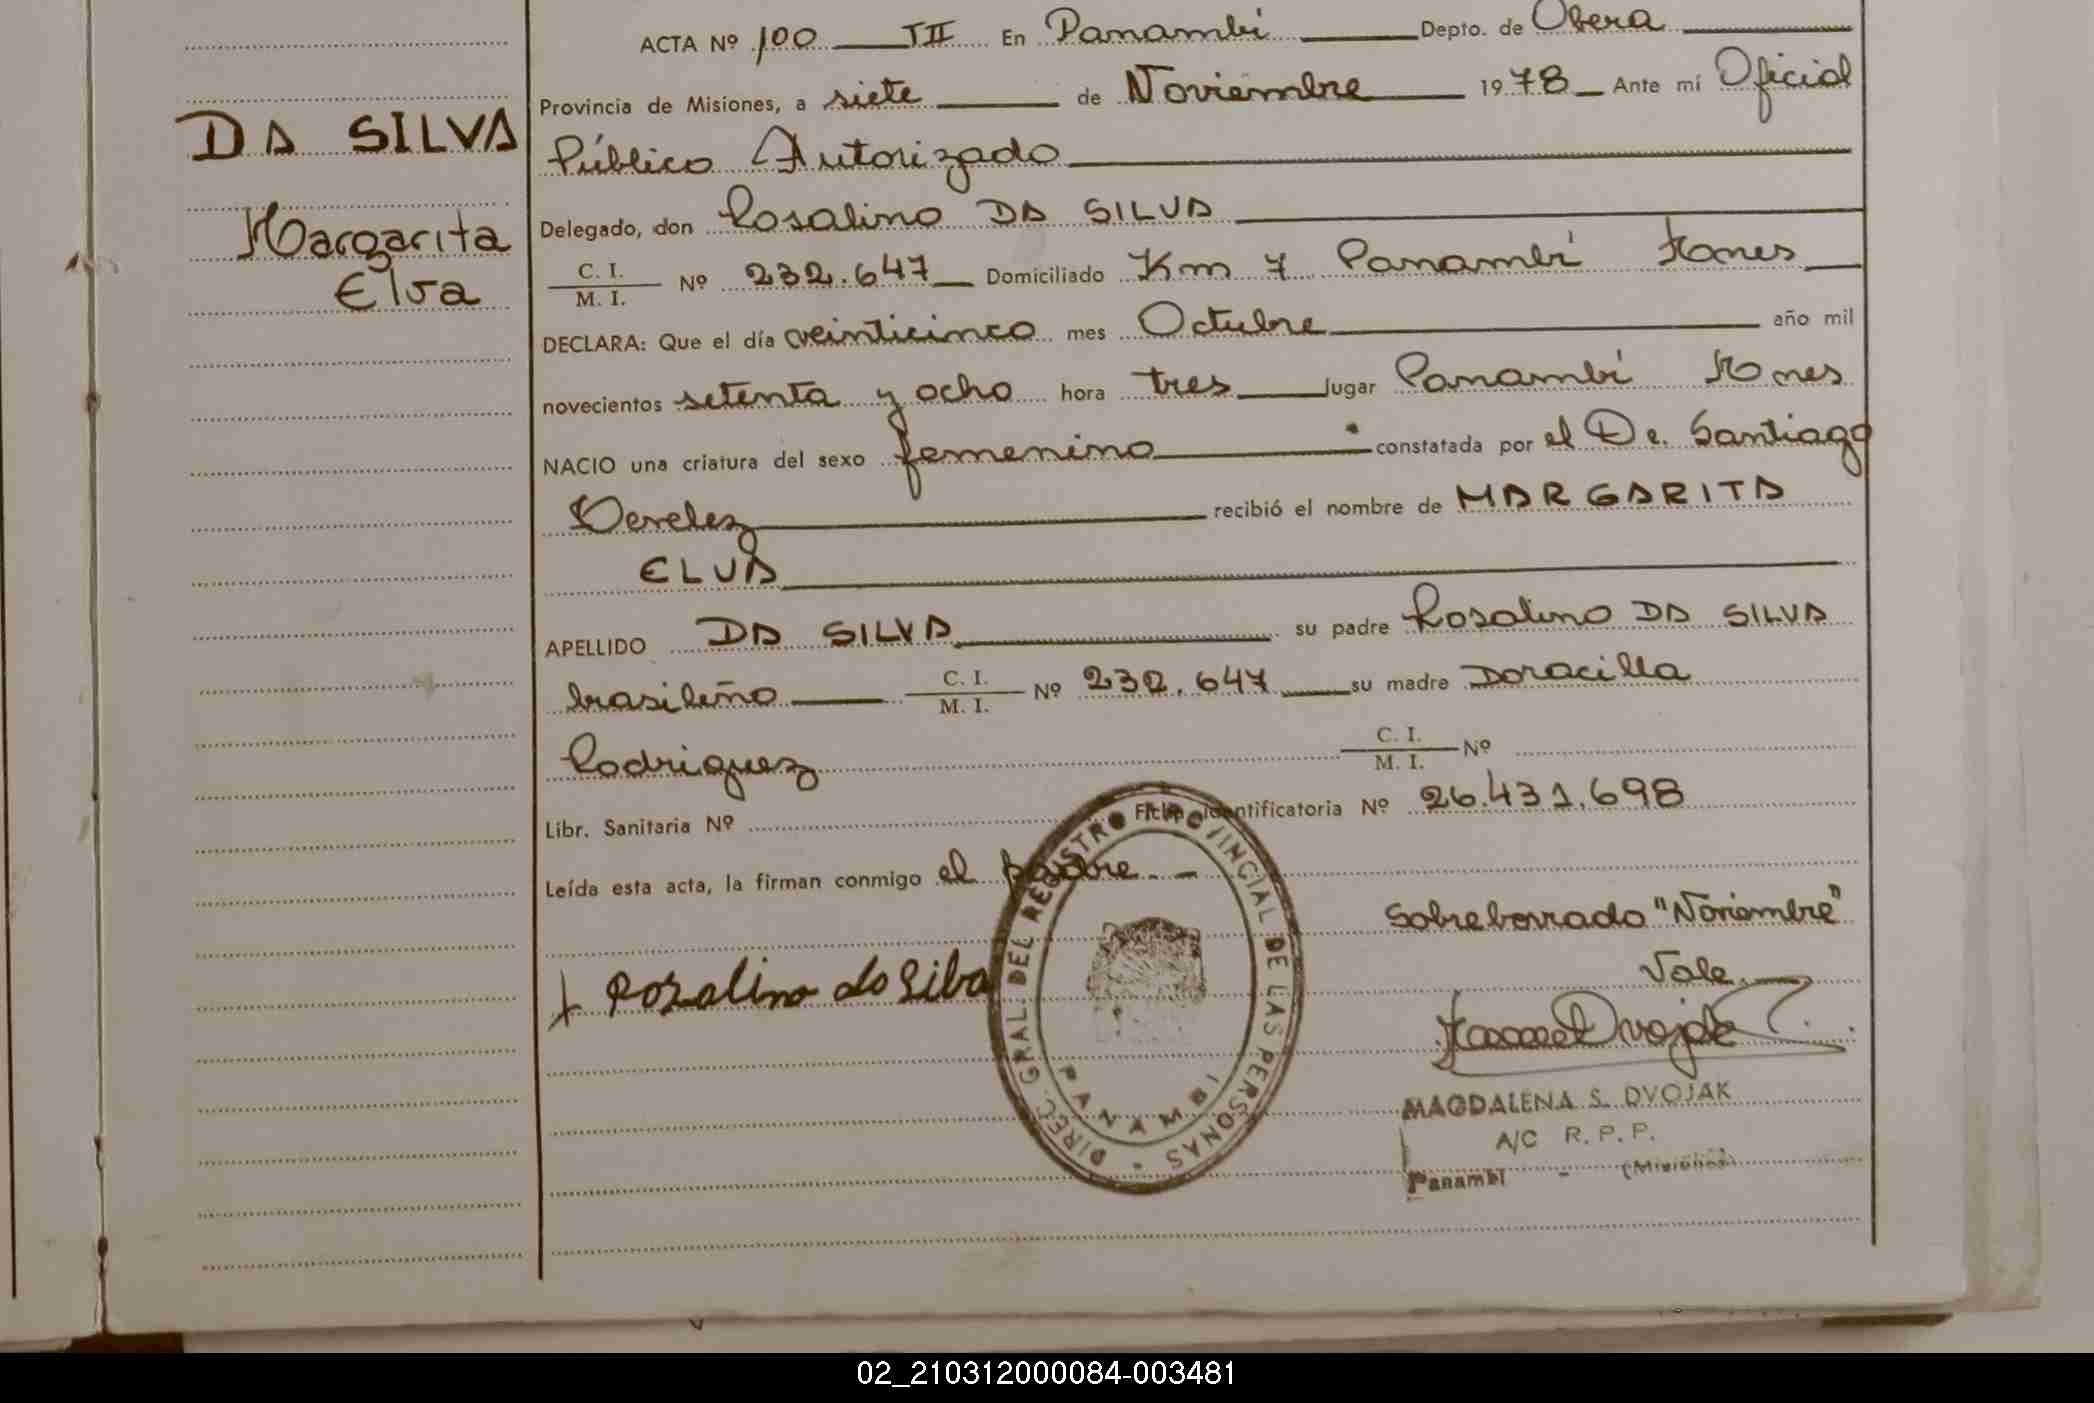 ACTA Nº 100 TII En Panambí Depto. de Obera
Provincia de Misiones, a siete de Noviembre 1978 Ante mí Oficial
DA SILVA
Público Autorizado
Margarita
Elva
Delegado, don Rosalino DA SILVA
C. I.
M. I. Nº 232.647 Domiciliado Km 7 Panambí Mnes
DECLARA: Que el día veinticinco mes Octubre año mil
novecientos setenta y ocho hora tres lugar Panambí Mnes
NACIO una criatura del sexo femenino constatada por el Dr. Santiago
recibió el nombre de MARGARITA
ELVA
APELLIDO DA SILVA su padre Rosalino DA SILVA
brasileño C. I.
M. I. Nº 232.647 su madre Doracilla
Rodriguez C. I.
M. I. Nº
Libr. Sanitaria Nº Ficha identificatoria Nº 26.431.698
Leída esta acta, la firman conmigo el padre. -
Sobreborrado "Noviembre"
Vale.
Rozalino do Silva
DIREC. GRAL DEL REGISTRO PROVINCIAL DE LAS PERSONAS
PANAMBI
MAGDALENA S. DVOJAK
A/C R. P. P.
Panambí - (Misiones)
02_210312000084-003481